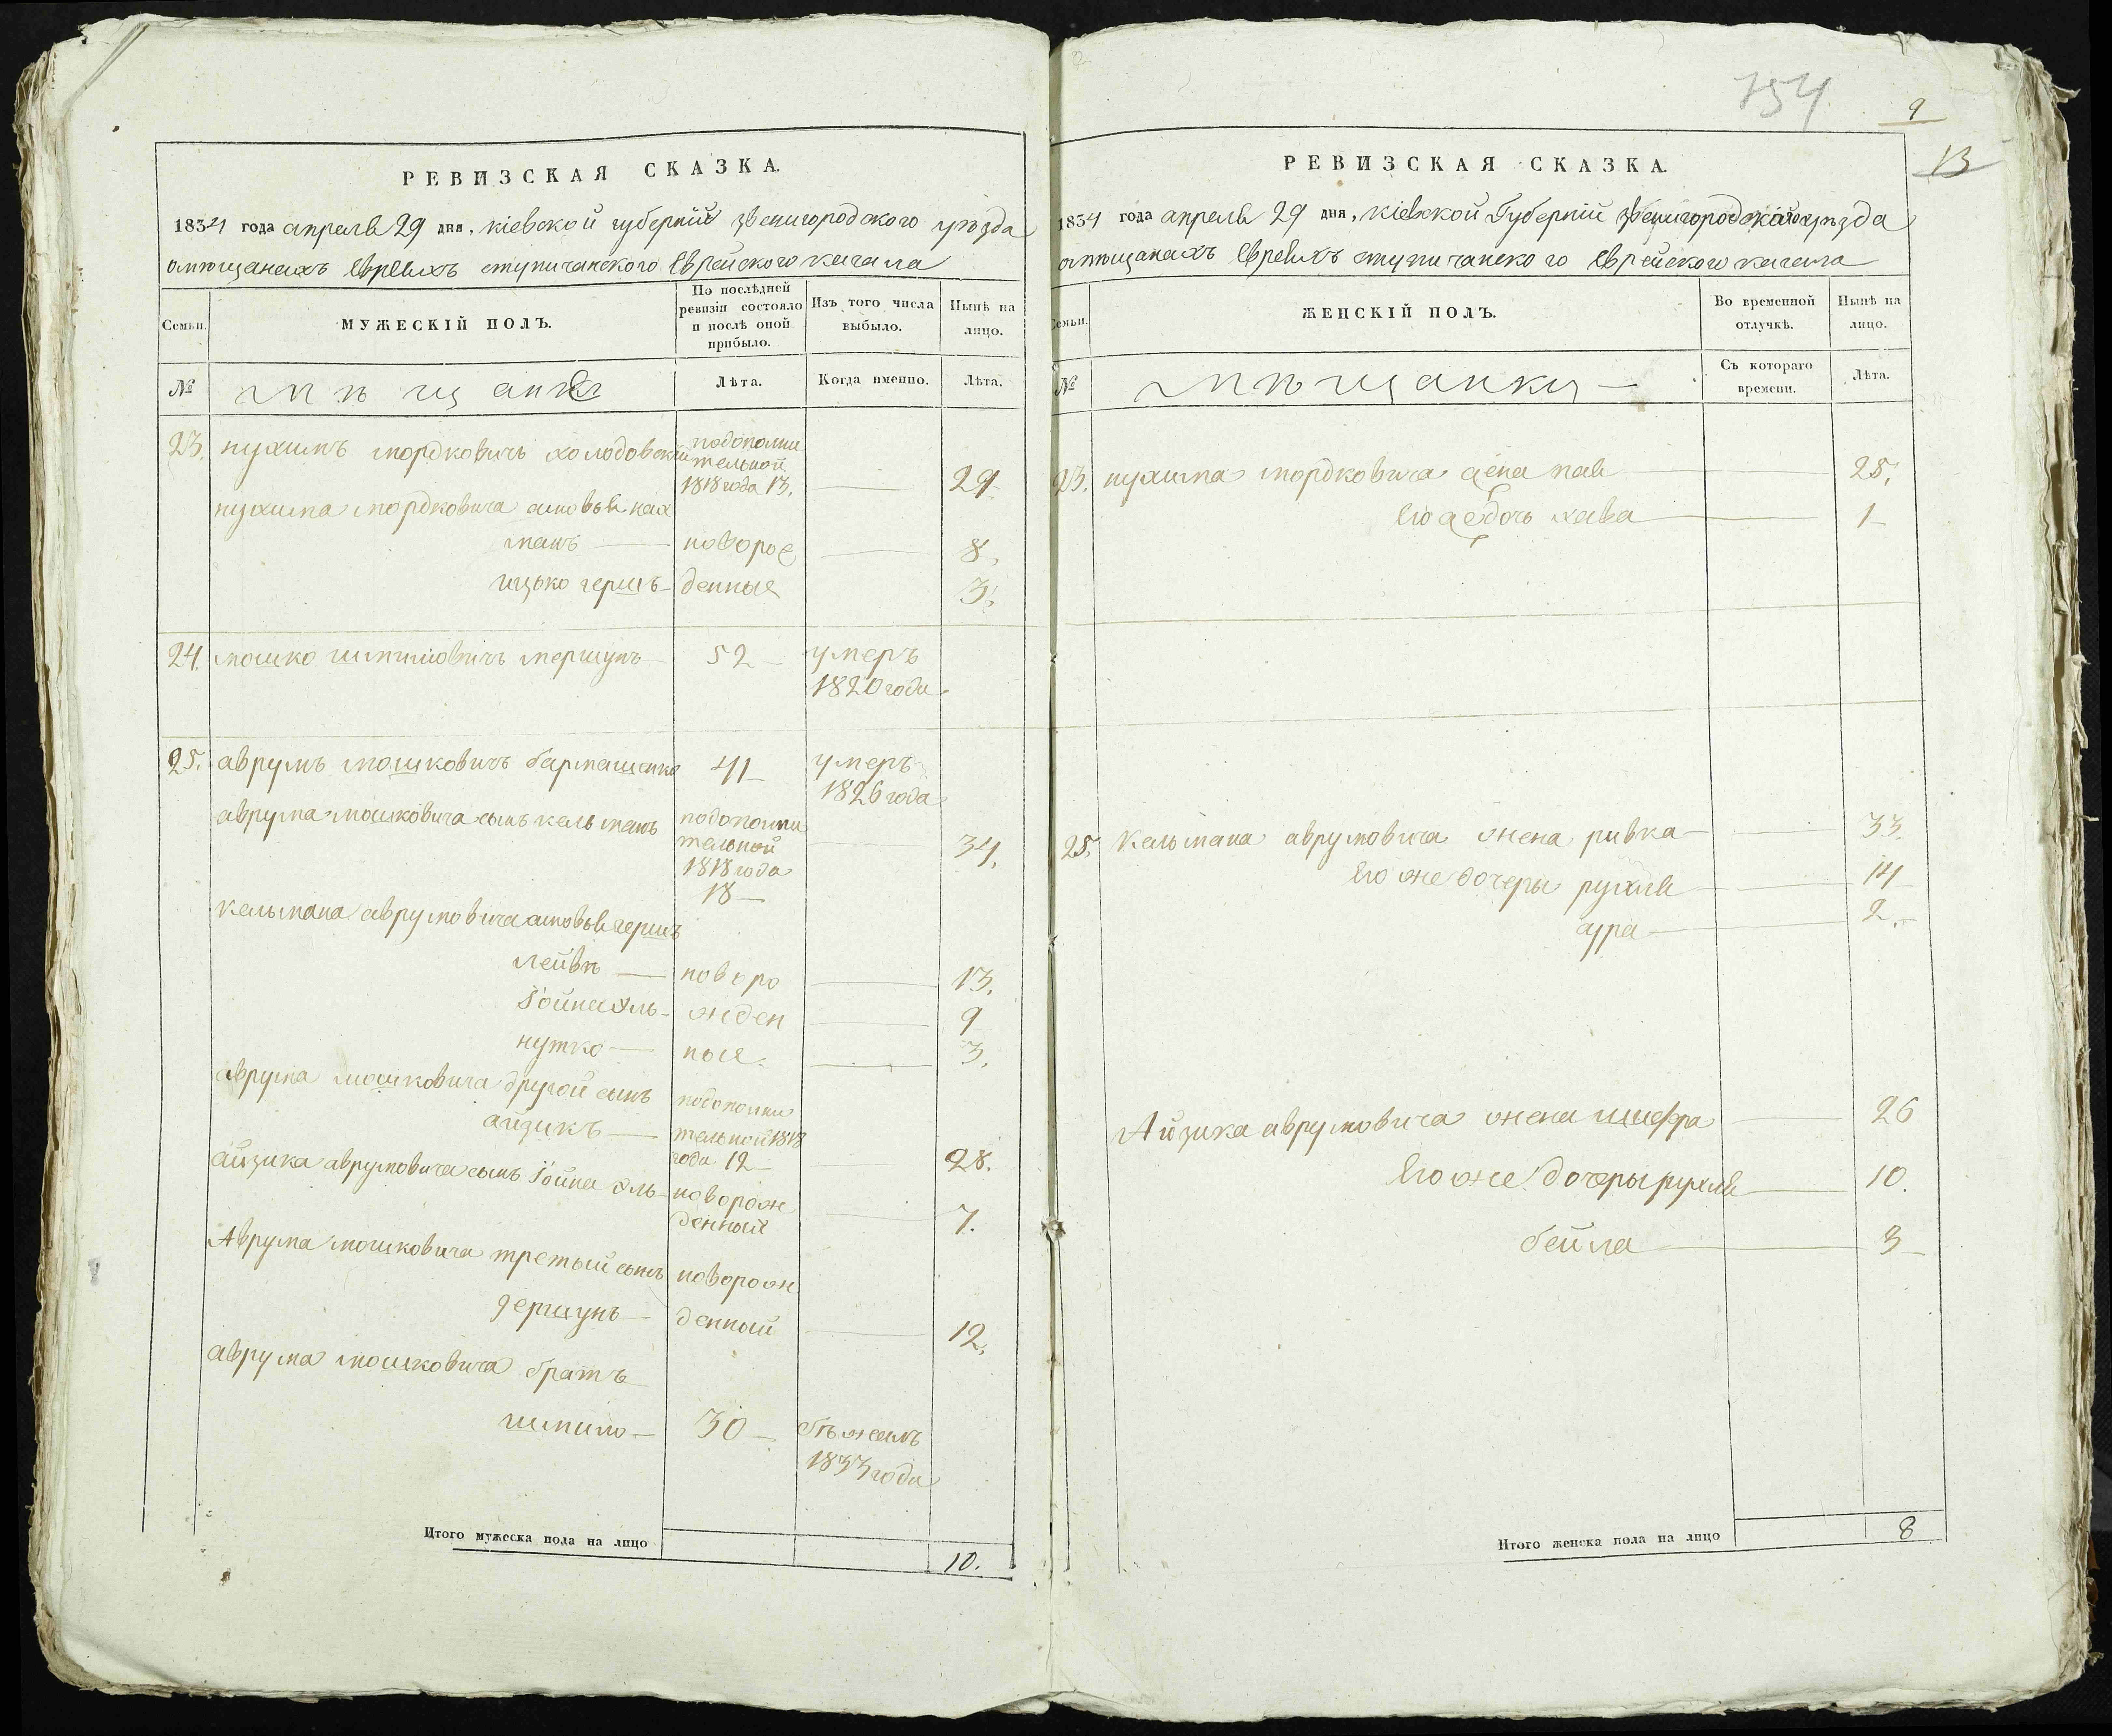 РЕВИЗСКАЯ СКАЗКА.
1834 года апреля 29 дня, кіевской губерній звенигородского уѣзда
омѣщанахъ Евреяхъ ступичанского Еврейского кагала
Семьи.
МУЖЕСКІЙ ПОЛЪ.
По послѣдней ревизіи состояло и послѣ оной прибыло.
Изъ того числа выбыло.
Нынѣ на лицо.
№
мѣщане
Лѣта.
Когда именно.
Лѣта.
23. нухимъ мордковичъ холодовскій
подополни
тельной
1818 года 13.
29
нухима мордковича сыновья нах
манъ — новорож 8.
ицько гершъ — денныя 3.
24. мошко шмилiовичъ мершунъ 52 — умеръ
1820 года
25. аврумъ мошковичъ бармашенко 41 — умеръ
1826 года
аврума мошковича сынъ кельманъ
подополни
тельной
1818 года
18 —
34.
кельмана аврумовича сыновья гершъ
лейбъ — новоро 13.
Іойна эль — жден 9
нутко — ныя. 3.
аврума мошковича другой сынъ
айзикъ —
подополни
тельной 1818
года 12 —
28.
айзика аврумовича сынъ Іойна эль — новорож
денный 7.
Аврума мошковича третый сынъ новорож
гершунъ — денный 12.
аврума мошковича братъ
шмило — 30 — бѣжалъ
1833 года
Итого мужеска пола на лицо
10.
754
9
13
РЕВИЗСКАЯ СКАЗКА.
1834 года апреля 29 дня, кіевской Губерній звенигородского уѣзда
омѣщанахъ Евреяхъ ступичанского Еврейского кагала
Семьи.
ЖЕНСКІЙ ПОЛЪ.
Во временной отлучкѣ.
Нынѣ на лицо.
№
мѣщанки —
Съ котораго времени.
Лѣта.
23. нухима мордковича жена 25.
Его же дочь хава 1
25. Кельмана аврумовича жена ривка 33.
Его же дочеры рухля 14
сура 2.
Айзика аврумовича жена шифра 26
Его же дочеры рухля 10.
бейла 3
Итого женска пола на лицо
8